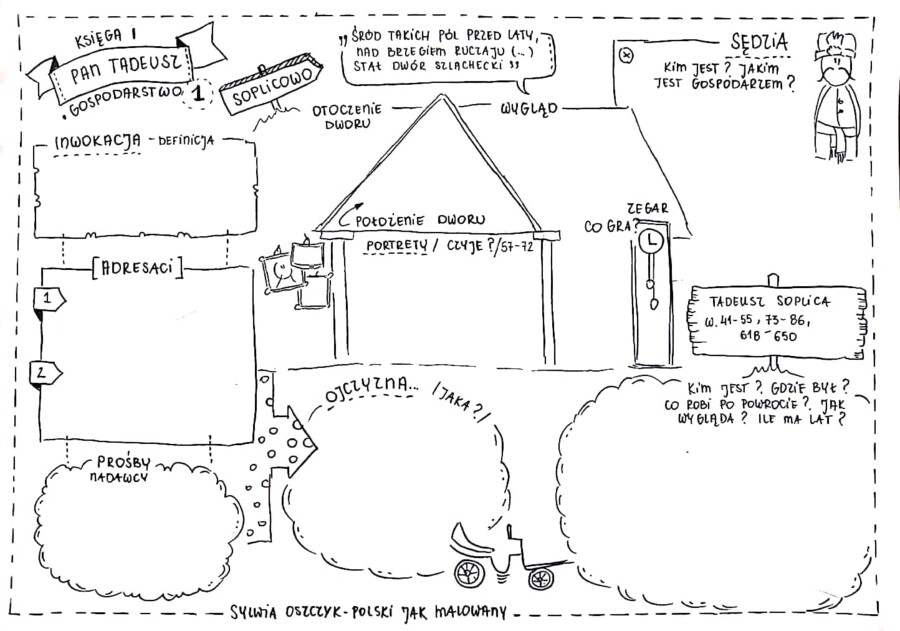 KSIĘGA I
PAN TADEUSZ
GOSPODARSTWO 1
SOPLICOWO
„ŚRÓD TAKICH PÓL PRZED LATY,
NAD BRZEGIEM RUCZAJU (...)
STAŁ DWÓR SZLACHECKI”
SĘDZIA
KIM JEST? JAKIM
JEST GOSPODARZEM?
OTOCZENIE
DWORU
WYGLĄD
INWOKACJA - DEFINICJA
POŁOŻENIE DWORU
PORTRETY / CZYJE? /57-72
ZEGAR
CO GRA?
[ADRESACI]
1
2
TADEUSZ SOPLICA
w. 41-55, 73-86,
618-650
OJCZYZNA... /JAKA?/
KIM JEST? GDZIE BYŁ?
CO ROBI PO POWROCIE? JAK
WYGLĄDA? ILE MA LAT?
PROŚBY
NADAWCY
SYLWIA OSZCZYK-POLSKI JAK MALOWANY